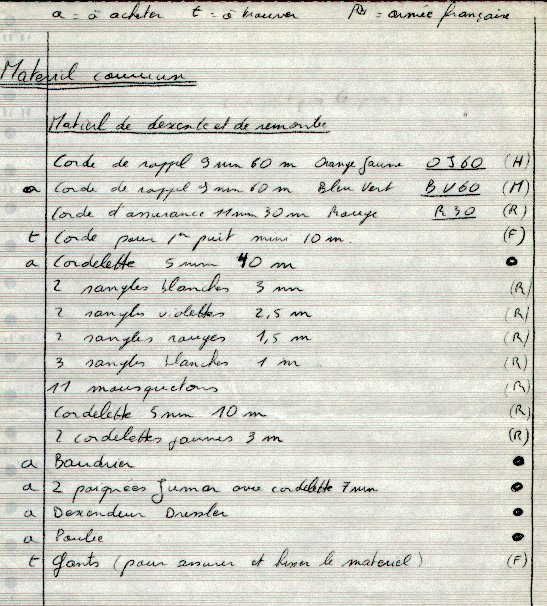 a = à acheter t = à trouver = armée française
Materiel commun
Matiel de descente et de remontée
Corde de rappel 9 mm 60 m Orange Jaune OJ60 (H)
a Corde de rappel 9 mm 60 m Bleu Vert BV60 (M)
Corde d'assurance 11 mm 30 m Rouge R30 (R)
t Corde pour 1er puit mini 10 m. (F)
a Cordelette 5 mm 40 m
2 sangles blanches 3 mm (R)
2 sangles violettes 2,5 m (R)
2 sangles rouges 1,5 m (R)
3 sangles blanches 1 m (R)
11 mousquetons (R)
Cordelette 5 mm 10 m (R)
2 cordelettes jaunes 3 m (R)
a Baudrier
a 2 poignees Jumar avec cordelette 7 mm
a Descendeur Dressler
a Poulie
t Gants (pour assurer et hisser le materiel) (F)